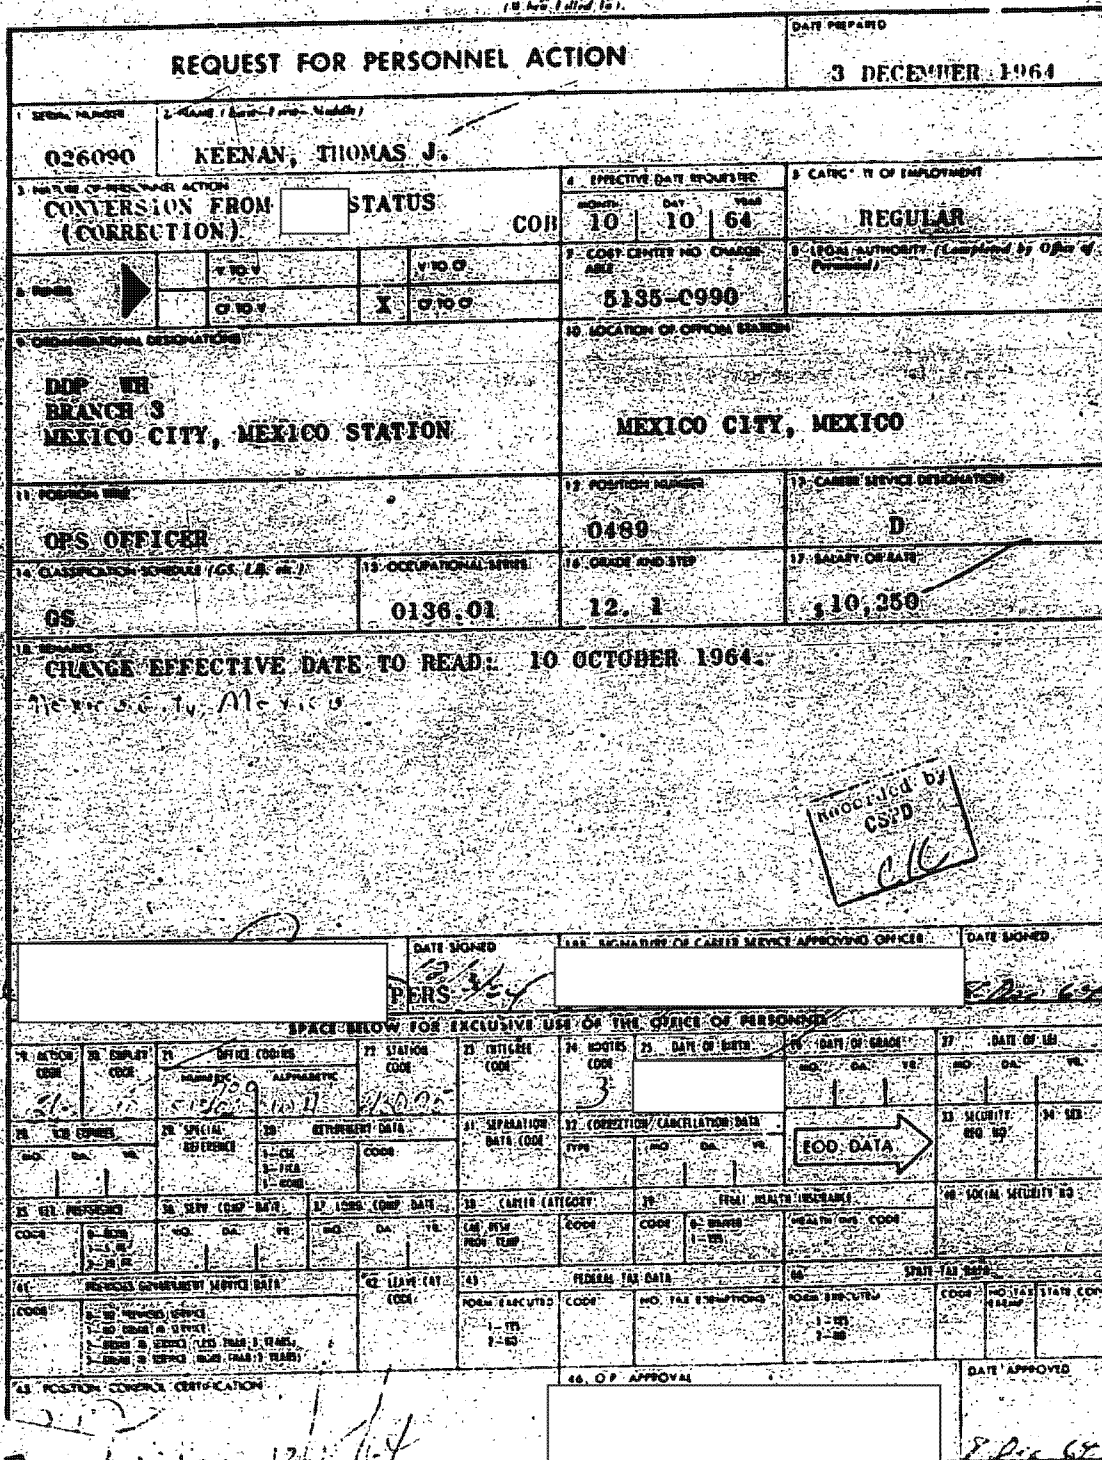 REQUEST FOR PERSONNEL ACTION
DATE PREPARED
3 DECEMBER 1964
1. SERIAL NUMBER
2. NAME (Last-First-Middle)
026090
KEENAN, THOMAS J.
3. NATURE OF PERSONNEL ACTION
CONVERSION FROM STATUS
(CORRECTION)
COR
4. EFFECTIVE DATE REQUESTED
MONTH DAY YEAR
10 10 64
5. CATEGORY OF EMPLOYMENT
REGULAR
6. FUNDS
V TO V
V TO CF
CF TO V
X CF TO CF
7. COST CENTER NO. CHARGEABLE
5135-0990
8. LEGAL AUTHORITY (Completed by Office of Personnel)
9. ORGANIZATIONAL DESIGNATIONS
DDP WH
BRANCH 3
MEXICO CITY, MEXICO STATION
10. LOCATION OF OFFICIAL STATION
MEXICO CITY, MEXICO
11. POSITION TITLE
OPS OFFICER
12. POSITION NUMBER
0489
13. CAREER SERVICE DESIGNATION
D
14. CLASSIFICATION SCHEDULE (GS, LB, etc.)
GS
15. OCCUPATIONAL SERIES
0136.01
16. GRADE AND STEP
12. 1
17. SALARY OR RATE
$10,250
18. REMARKS
CHANGE EFFECTIVE DATE TO READ: 10 OCTOBER 1964.
Mexico City, Mexico
Recorded by
CSPD
PERS
DATE SIGNED
18B. SIGNATURE OF CAREER SERVICE APPROVING OFFICER
DATE SIGNED
SPACE BELOW FOR EXCLUSIVE USE OF THE OFFICE OF PERSONNEL
19. ACTION CODE
20. EMPLOY CODE
21. OFFICE CODING
NUMERIC
ALPHABETIC
22. STATION CODE
23. INTEGREE CODE
24. HDQTRS CODE
3
25. DATE OF BIRTH
26. DATE OF GRADE
MO. DA. YR.
27. DATE OF LEI
MO. DA. YR.
28. NTE EXPIRES
MO. DA. YR.
29. SPECIAL REFERENCE
30. RETIREMENT DATA
1-CSC
3-FICA
5-NONE
CODE
31. SEPARATION DATA CODE
32. CORRECTION/CANCELLATION DATA
TYPE
MO. DA. YR.
EOD DATA
33. SECURITY REQ NO
34. SEX
35. VET. PREFERENCE
CODE
36. SERV. COMP. DATE
MO. DA. YR.
37. LONG. COMP. DATE
MO. DA. YR.
38. CAREER CATEGORY
CODE
39. FEGLI HEALTH INSURANCE
CODE
0-WAIVER
1-YES
HEALTH INS. CODE
40. SOCIAL SECURITY NO
41. PREVIOUS GOVERNMENT SERVICE DATA
CODE
0-NO PREVIOUS SERVICE
1-NO BREAK IN SERVICE
2-BREAK IN SERVICE (LESS THAN 3 YEARS)
3-BREAK IN SERVICE (MORE THAN 3 YEARS)
42. LEAVE CAT. CODE
43. FEDERAL TAX DATA
FORM EXECUTED
1-YES
2-NO
CODE
NO. TAX EXEMPTIONS
44. STATE TAX DATA
FORM EXECUTED
1-YES
2-NO
CODE
NO. TAX EXEMP
STATE CODE
45. POSITION CONTROL CERTIFICATION
46. O.P. APPROVAL
DATE APPROVED
8 Dec 64